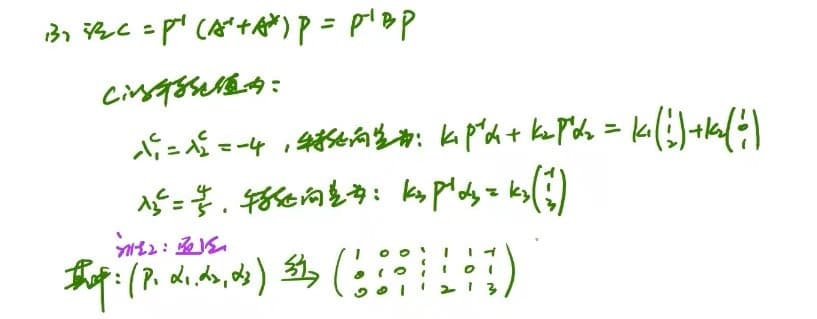 (3) 设 C = P⁻¹(A⁻¹+A*)P = P⁻¹BP
C的特征值为:
λ₁ᶜ = λ₂ᶜ = -4, 特征向量为: k₁P⁻¹α₁ + k₂P⁻¹α₂ = k₁(1 1 2) + k₂(1 0 1)
λ₃ᶜ = 4/5, 特征向量为: k₃P⁻¹α₃ = k₃(-1 1 3)
其中: (P, α₁, α₂, α₃) 行→ (1 0 0 ⋮ 1 1 -1
0 1 0 ⋮ 1 0 1
0 0 1 ⋮ 2 1 3)